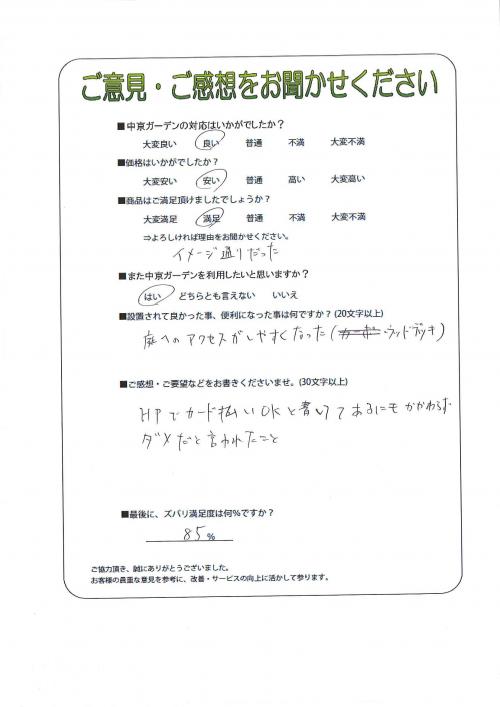 ご意見・ご感想をお聞かせください
■中京ガーデンの対応はいかがでしたか？
大変良い 良い 普通 不満 大変不満
■価格はいかがでしたか？
大変安い 安い 普通 高い 大変高い
■商品はご満足頂けましたでしょうか？
大変満足 満足 普通 不満 大変不満
⇒よろしければ理由をお聞かせください。
イメージ通りだった
■また中京ガーデンを利用したいと思いますか？
はい どちらとも言えない いいえ
■設置されて良かった事、便利になった事は何ですか？(20文字以上)
庭へのアクセスがしやすくなった(ウッドデッキ)
■ご感想・ご要望などをお書きくださいませ。(30文字以上)
HPでカード払いOKと書いてあるにもかかわらず
ダメだと言われたこと
■最後に、ズバリ満足度は何％ですか？
85％
ご協力頂き、誠にありがとうございました。
お客様の貴重な意見を参考に、改善・サービスの向上に活かして参ります。